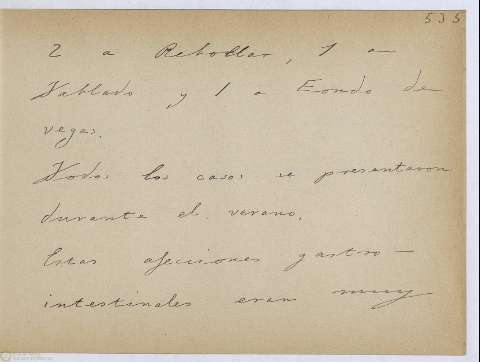 535
2 a Rebollar, 1 a
Tablado y 1 a Fondo de
vegas.
Todos los casos se presentaron
durante el verano.
Estas afecciones gastro-
intestinales eran muy